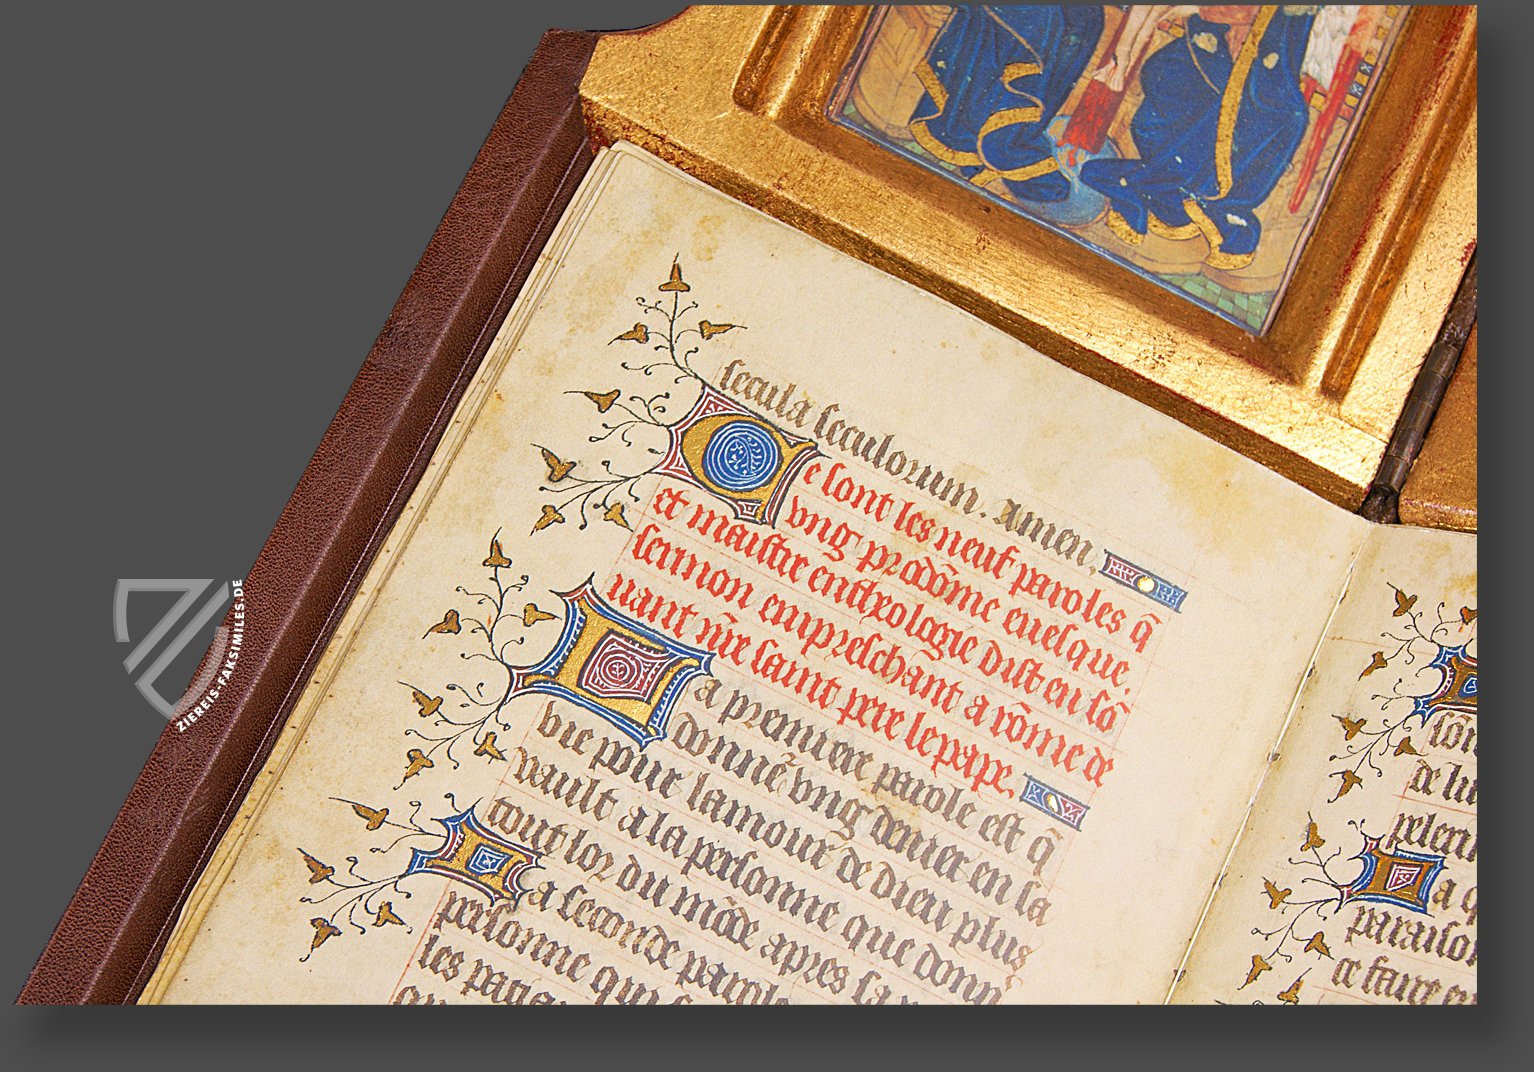 secula seculorum. Amen.
Ce sont les neuf paroles q̄
vng prodōme euesque,
et maistre en theologie dist en sō
sermon en preschant a rōme de
uant nr̄e saint pere le pape.
La premiere parole est q̄
donne vng denier en la
vie pour lamour de dieu plus
vault a la personne que donn
tout lor du mōde apres sa
La seconde parole
personne qui
les
sōn
de lu
pelerin
La q
paraiso
ce faire e
ZIEREIS-FAKSIMILES.DE